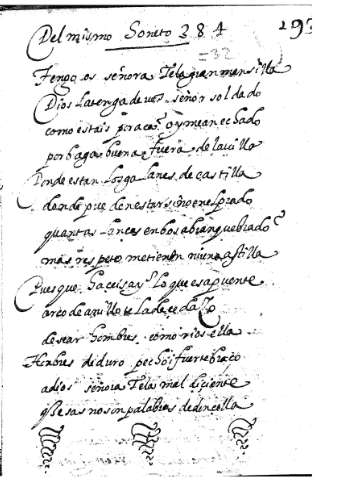 Del mismo Soneto 384
293
=32
Tengo os señora Tela gran mansilla
Dios la tenga de vos señor soldado
como estais por aca oy mean echado
por bagabunda fuera de la villa
Donde estan los galanes de castilla
donde pueden estar sino enel prado
quantas lanças en bos abian quebrado
mas respeto me tienen ni una astilla
Pues que haceis ay lo que esa puente
arco de anillo tela de cedaço
desear hombres como rios ella
Honbres de duro pecho i fuerte braço
adios señora Tela mal diciente
q esas no son palabras de doncella